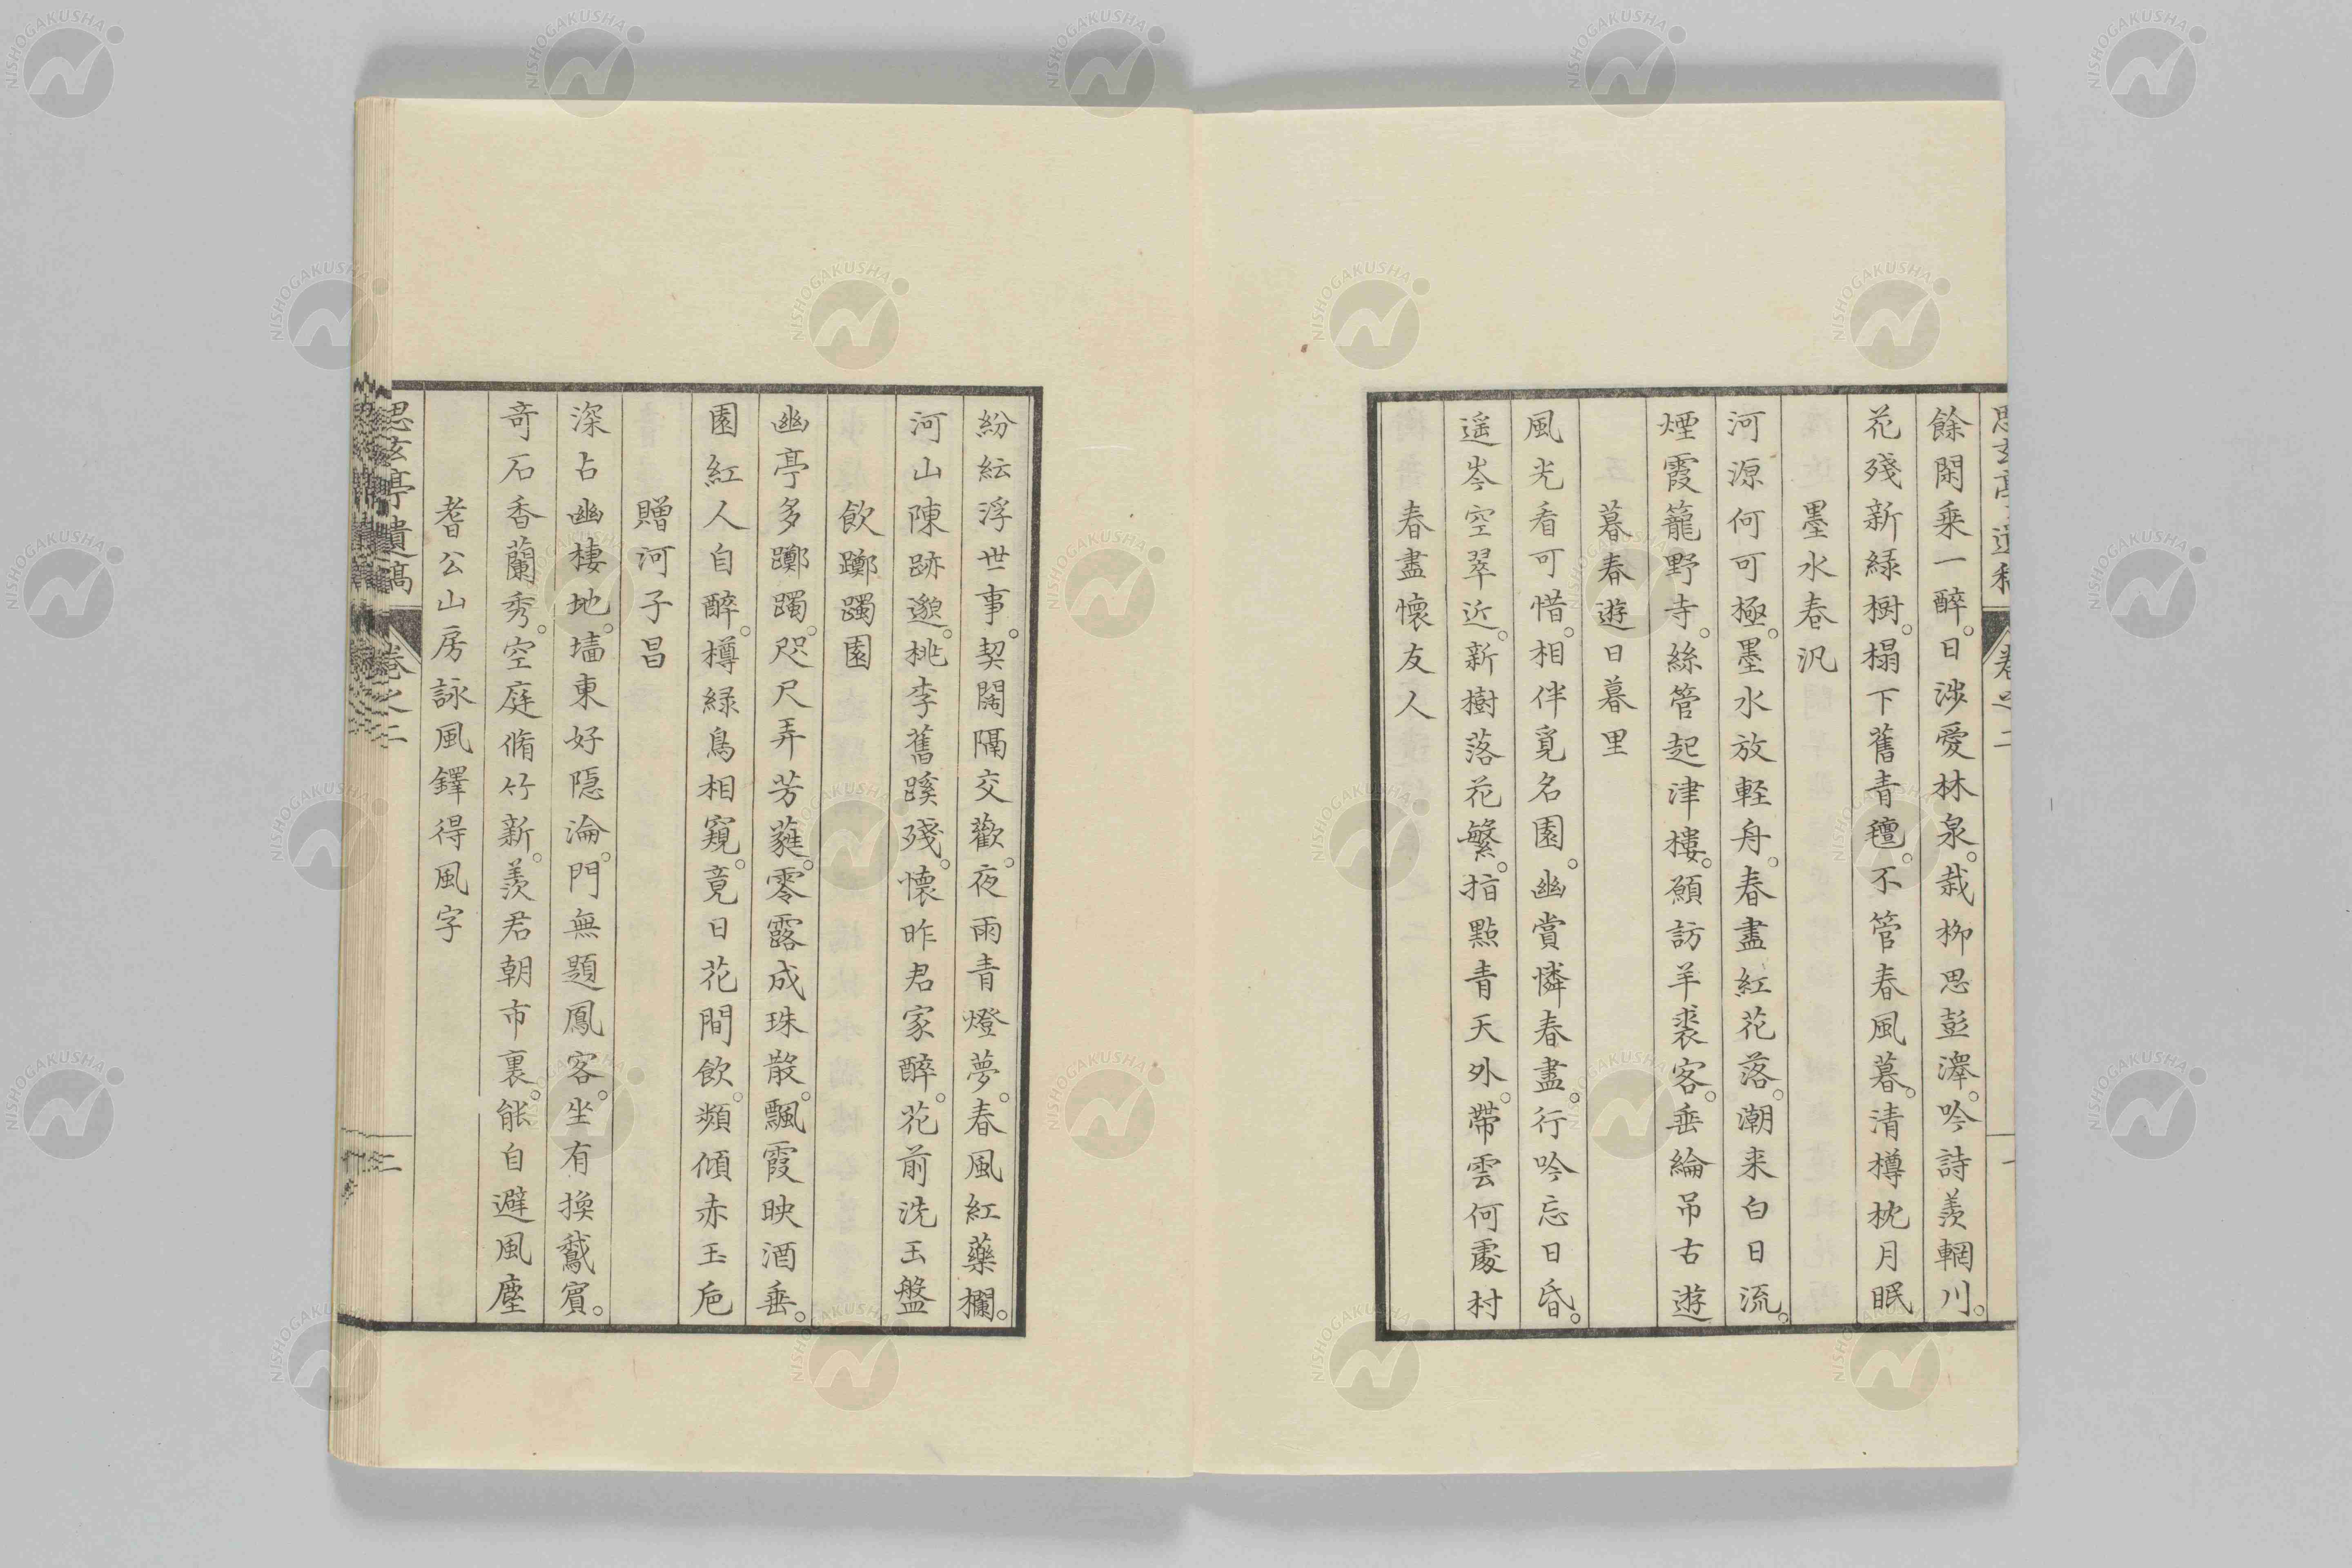 餘閑乗一醉。日渉愛林泉。栽栁思彭澤。吟詩羨輞川。
花殘新緑樹。榻下舊青氊。不管春風暮。清樽枕月眠
墨水春汎
河源何可極。墨水放軽舟。春盡紅花落。潮来白日流。
煙霞籠野寺。絲管起津樓。願訪羊裘客。垂綸吊古遊
暮春遊日暮里
風光看可惜。相伴覓名園。幽賞憐春盡。行吟忘日昏。
遥岑空翠近。新樹落花繁。指點青天外。帶雲何處村
春盡懷友人
紛紜浮世事。契闊隔交歡。夜雨青燈夢。春風紅藥欄。
河山陳跡邈。桃李舊蹊殘。懷昨君家醉。花前洗玉盤
飲躑躅園
幽亭多躑躅。咫尺弄芳蕤。零露成珠散。飄霞映酒垂。
園紅人自醉。樽緑鳥相窺。竟日花間飲。頻傾赤玉卮
贈河子昌
深占幽棲地。墻東好隠淪。門無題鳳客。坐有換鵞賓。
奇石香蘭秀。空庭脩竹新。羨君朝市裏。能自避風塵
耆公山房詠風鐸得風字
思玄亭遺稿 卷之二 二